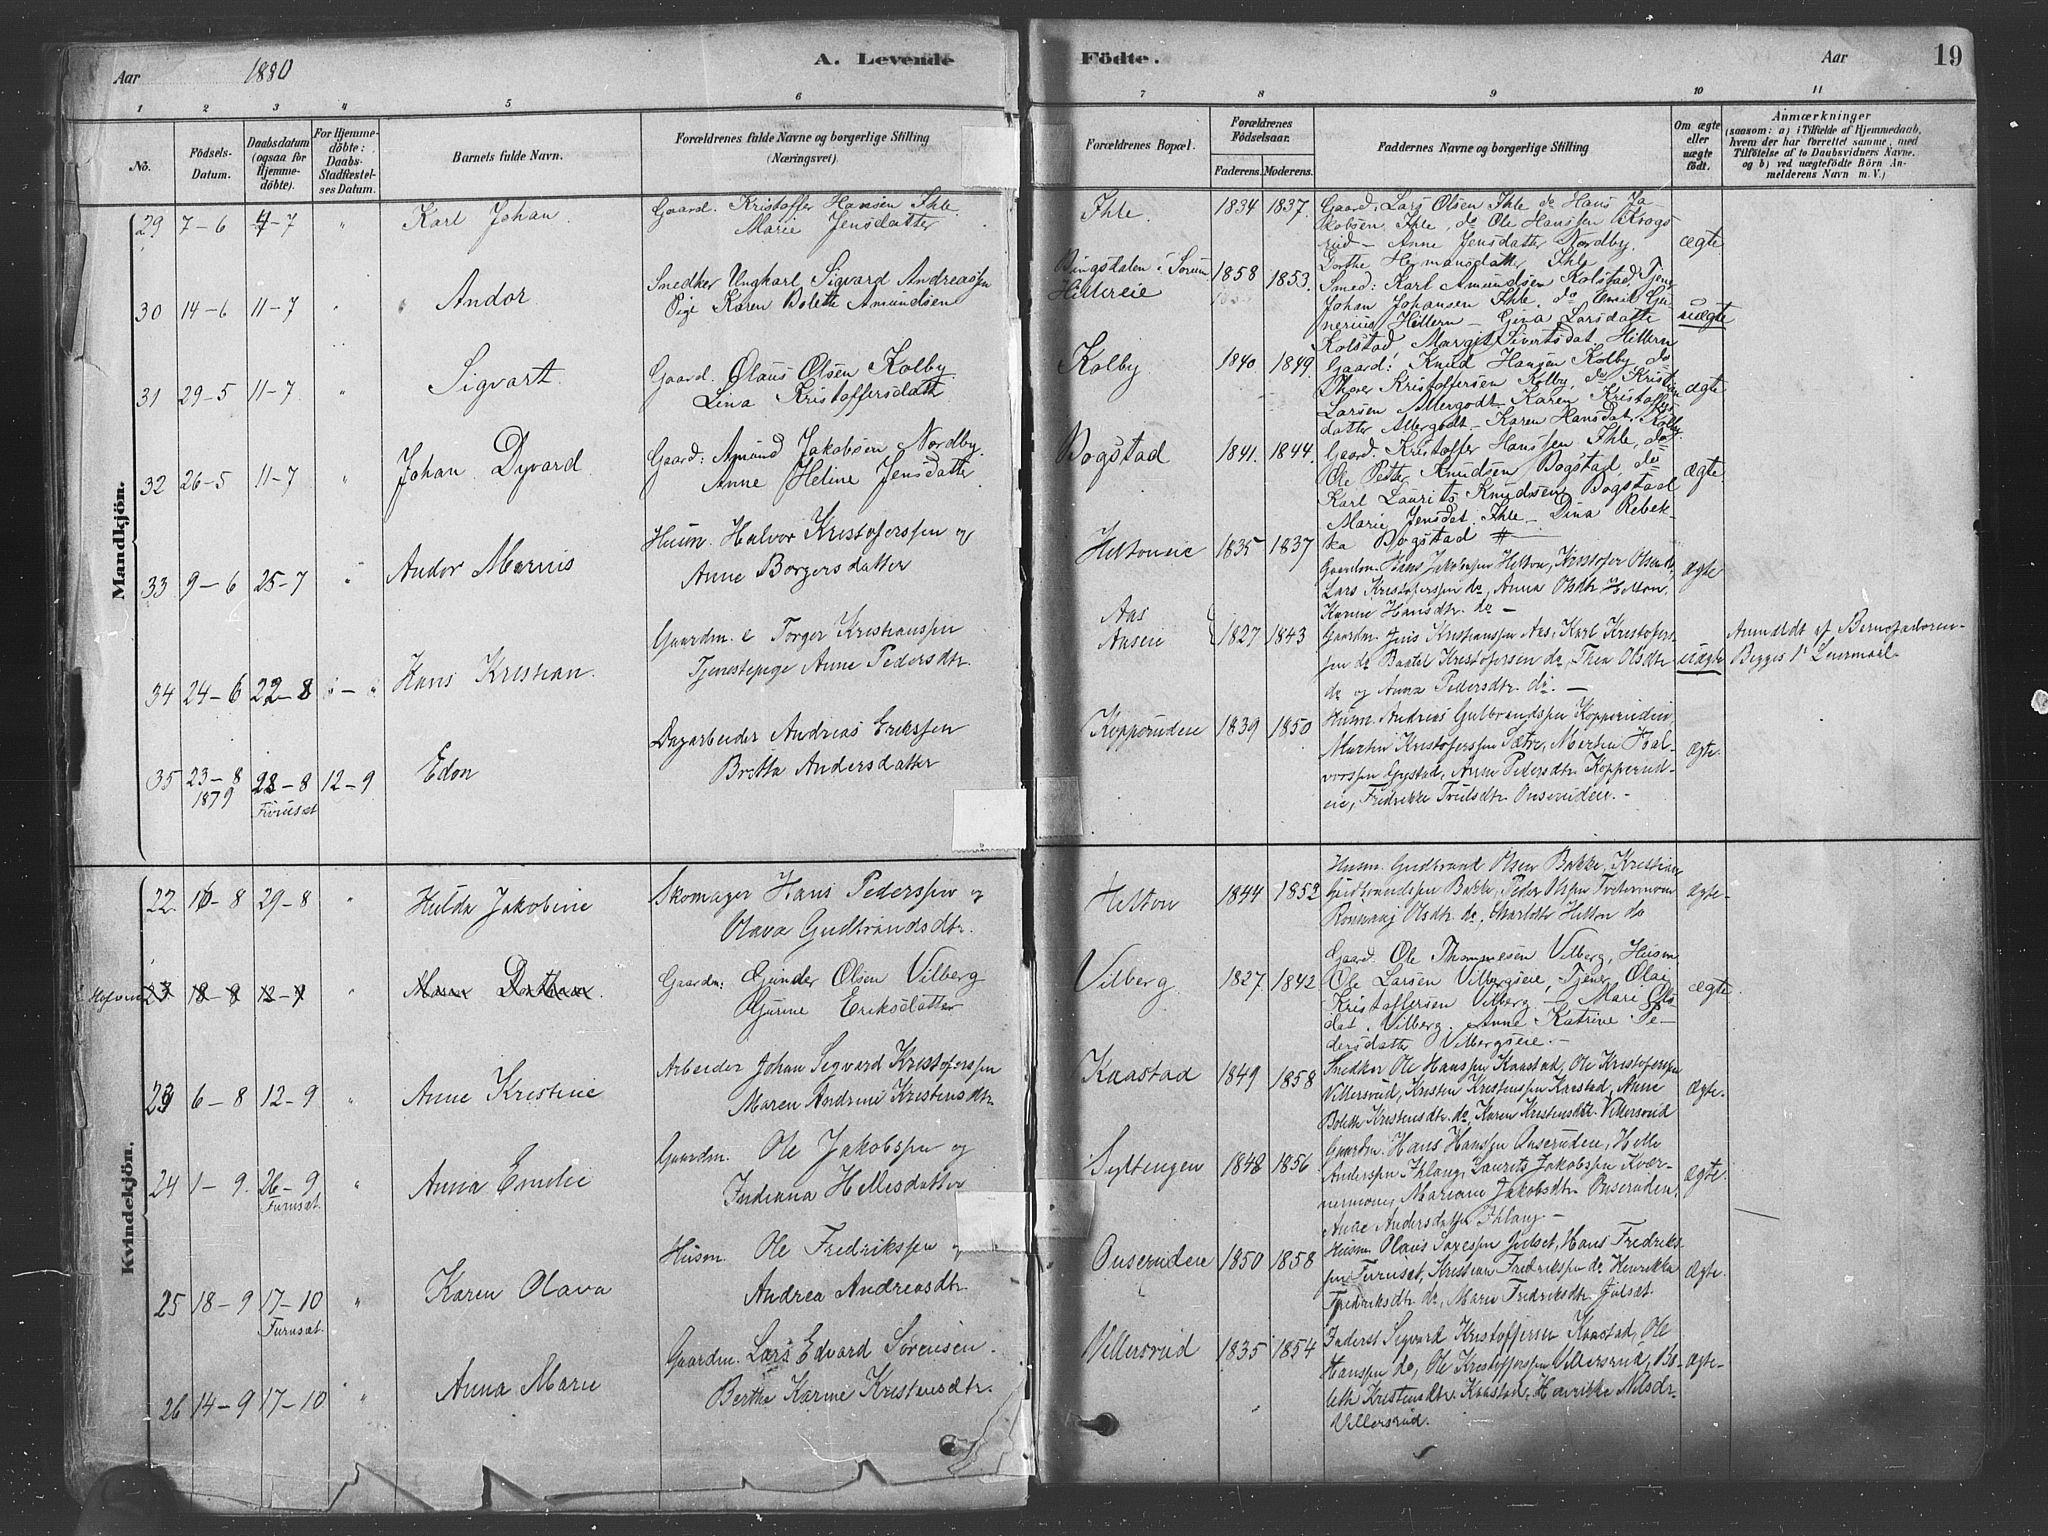 Aar 1880 A. Levende Födte. Aar 19
1 2 3 4 5 6 7 8 9 10 11
No.
Födsels-Datum.
Daabsdatum (ogsaa for Hjemmedöbte).
For Hjemmedöbte: Daabs-Stadfæstelses Datum.
Barnets fulde Navn.
Forældrenes fulde Navne og borgerlige Stilling (Næringsvei).
Forældrenes Bopæl.
Forældrenes Födselsaar.
Faderens. Moderens.
Faddernes Navne og borgerlige Stilling
Om ægte eller uægte födt.
Anmærkninger
(saasom: a) i Tilfælde af Hjemmedaab, hvem der har forrettet samme, med Tilföielse af to Daabsvidners Navne, og b) ved uægtefödte Börn Anmelderens Navn m. V.)
Mandkjön.
29 7-6 4-7 " Karl Johan.
Gaard. Kristoffer Hansen Ihle.
Marie Jensdatter
Ihle. 1834 1837.
Gaard. Lars Olsen Ihle do Hans Ja-
kobsen Ihle, do Ole Hanssen Krogs-
eid - Anne Jensdatter Nordby.
Gorthe Hermansdatter Ihle
ægte
30 14-6 11-7 " Andor
Snedker Ungkarl Sigvard Andreassen
Pige Karen Bolette Amundsen
Bingsdalen i Sørum
Hillereie 1858 1853.
Smed: Karl Amundsen Kolstad, Tjener
Johan Johansen Ihle, do Emil Gu-
nerius Hillern - Gina Larsdatte
Kolstad Margit Sivertsdat. Hillern
uægte
31 29-5 11-7 " Sigvart.
Gaard. Olaus Olsen Kolby.
Lina Kristoffersdatt
Kolby 1840 1849.
Gaard: Knud Hansen Kolby, do
Thorer Kristoffersen Kolby, do Kristian
Larsen Allergodt - Karen Kristoffers-
datter Allergodt - Karen Hansdat. Kolby.
ægte
32 26-5 11-7 " Johan Dyvard
Gaard: Amund Jakobsen Nordby.
Anne Heline Jensdatter
Bogstad 1841. 1844.
Gaard. Kristoffer Hanssen Ihle, do
Ole Petter Knudsen Bogstad, do
Karl Laurits Knudsen Bogstad
Marie Jensdat. Ihle - Dina Rebek-
ka Bogstad
ægte.
33 9-6 25-7 " Andor Marius
Husm. Halvor Kristoferssen og
Anne Borgersdatter
Heltoneie 1835 1837
Gaardm. Hans Jakobssen Helton, Kristofer Olsen do,
Lars Kristoferssen do, Anna Olsdtr Helton,
Karine Hansdtr. do -
ægte
34 24-6 22-8 " - " Hans Kristian.
Gaardm. e Torger Kristianssen
Tjenestepige Anne Pedersdtr.
Aas
Aaseie 1827 1843
Gaardm. Jens Kristianssen Aas, Karl Kristofers-
sen do Baatel Kristofersen do, Thea Olsdtr
do og Anna Pedersdtr. do. -
uægte
Anmeldt af Barnefaderen -
Begges 1ste Leiermaal -
35 23-8 1879 28-8 Furuset 12-9 Edon
Dagarbeider Andreas Erikssen
Bretta Andersdatter
Kopperudeie 1839 1850
Husm. Andreas Gulbrandssen Kopperudeie,
Martin Kristoferssen Sætre, Morten Hal-
vorssen Gystad, Anne Pedersdtr Kopperud-
eie, Fredrikke Trulsdtr Onserudeie. -
ægte.
Kvindekjön.
22. 16-8 29-8 " Hulda Jakobine
Skomager Hans Pederssen og
Olava Gudbrandsdtr.
Helton 1844 1853
Husm. Gudbrand Olsen Bakke, Kristian
Gudbrandssen Bakke, Peder Olssen
Olsdtr. do, Charlotte Helton do
ægte.
23 18-8 12-9 "
Gaardm: Gunder Olsen Vilberg
Gurine Eriksdatter
Vilberg. 1827 1842
Gaard. Ole Thommesen Vilberg, Husm
Ole Larsen Vilbergseie, Tjener Olai
Kristoffersen Vilberg - Mari Ols-
dat. Vilberg. Anne Katrine Pe-
dersdatter Vilbergseie. -
ægte
23 6-8 12-9 " Anne Kristine
Arbeider Johan Sigvard Kristoferssen
Maren Andrine Kristensdtr.
Kaastad 1849 1858
Snedker Ole Hanssen Kaastad, Ole Kristoferssen
Villersrud, Kristen Kristenssen Kaastad, Anne
Bolette Kristensdtr. do, Karen Kristensdtr. Villersrud
ægte.
24 1-9. 26-9 Furuset. " Anna Emilie
Gaardm. Ole Jakobssen og
Indiana Hellesdatter
Syltengen 1848 1856
Gaardm. Hans Hanssen Onserudeie, Helle
Anderssen Ihlang, Laurits Jakobssen Kvær-
nermoen, Mariane Jakobsdtr. Onseruden,
Anne Andersdatter Ihlang -
ægte.
25 18-9 17-10 Furuset. " Karen Olava
Husm. Ole Fredrikssen og
Andrea Andreasdtr.
Onserudeie 1850 1858
Husm. Olaus Julset, Hans Fredriks-
sen Furuset, Kristian Fredrikssen do Henrikka
Fredriksdtr. do, Marie Fredriksdtr. Julset.
ægte.
26 14-9 17-10 " Anna Marie
Gaardm. Lars Edvard Sørensen.
Berthe Karine Kristensdtr.
Villersrud 1835 1854
Inderst Sigvard Kristoffersen Kaastad, Ole
Hanssen do, Ole Kristofferssen Villersrud, Bo-
lette Kristensdtr. Kaastad, Henrikke Nilsdr.
Villersrud.
ægte-